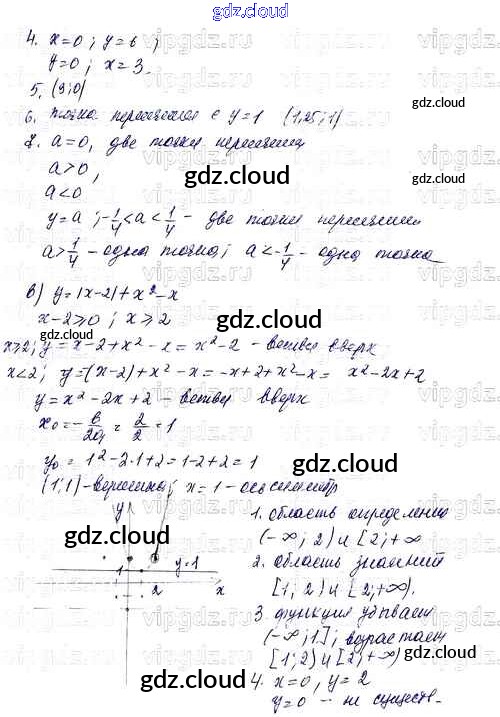 gdz.cloud
4. x=0; y=6;
y=0; x=3.
5. (3;0)
6. точка пересечения с y=1 (1,25; 1)
7. a=0, две точки пересечения
a>0,
a<0
y=a; -1/4<a<1/4 - две точки пересечения
a>1/4 - одна точка; a<-1/4 - одна точка
в) y=|x-2|+x²-x
x-2≥0; x≥2
x≥2; y=x-2+x²-x=x²-2 - ветви вверх
x<2; y=-(x-2)+x²-x=-x+2+x²-x= x²-2x+2
y=x²-2x+2 - ветви вверх
x₀=-в/2a=2/2=1
y₀=1²-2·1+2=1-2+2=1
(1;1)-вершина; x=1-ось симметр
y
1
y=1
2
x
1. область определения
(-∞; 2) и [2;+∞
2. область значений
[1; 2) и [2;+∞).
3. функция убывает
(-∞;1]; возрастает
[1;2) и [2;+∞)
4. x=0, y=2
y=0 - не существ.